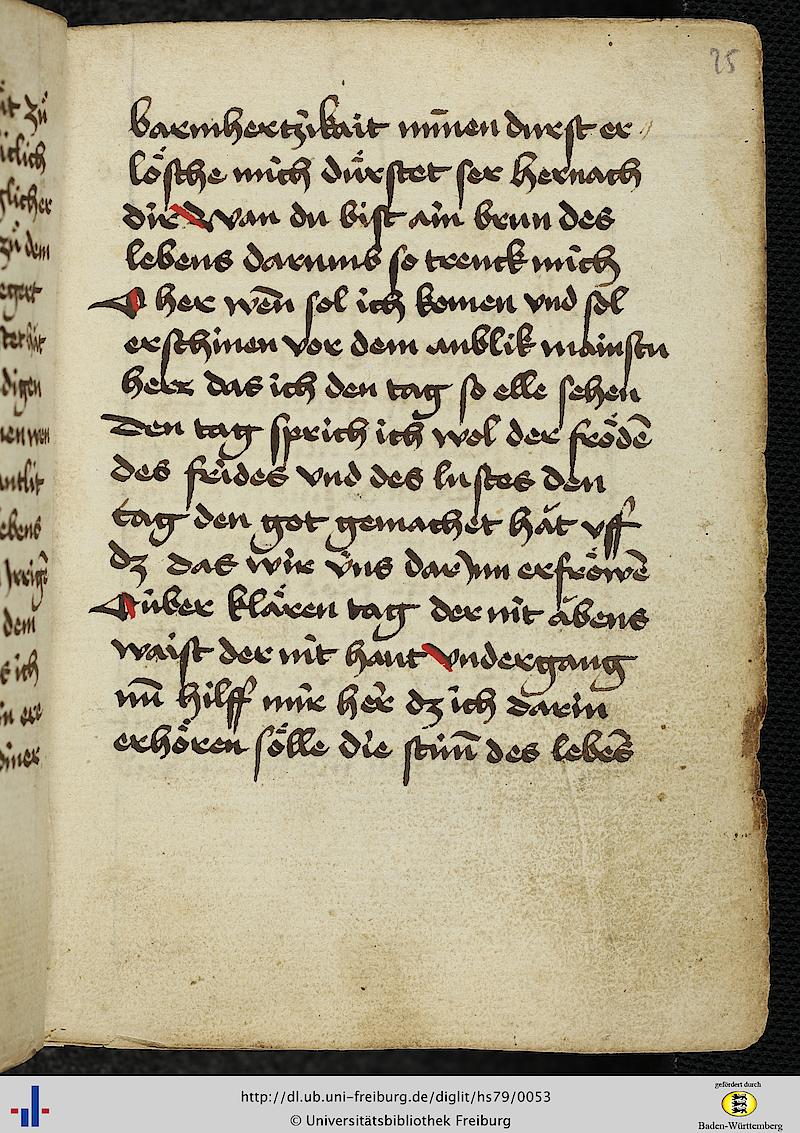 25
barmhertzikait minen durst er
lösche mich dürstet ser hernach
dir Wan du bist ain brun des
lebens darumb so trenck mich
O her wen̄ sol ich komen vnd sol
erschinen vor dem anblik
herr das ich den tag so elle sehen
Den tag sprich ich wol der frödē
des frides vnd des lustes den
tag den got gemachet hăt vff
dz das wir vns dar Inn erfröwē
O über klären tag der nit äbens
waist der nit haut vndergang
nū hilff mir her dz ich darin
erhören sölle die stim̄ des lebēs
zů
iclich
glicher
zů dem
egert
digen
nen wen
antlit
ebens
dem
ich
ere
diner
http://dl.ub.uni-freiburg.de/diglit/hs79/0053
© Universitätsbibliothek Freiburg
gefördert durch
Baden-Württemberg